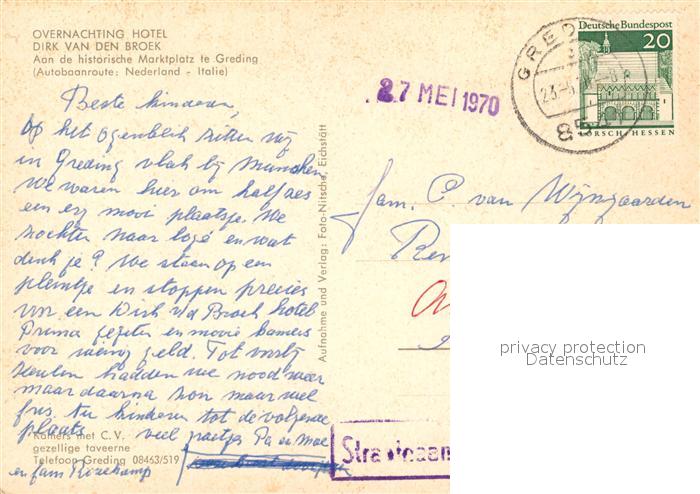 OVERNACHTING HOTEL
DIRK VAN DEN BROEK
Aan de historische Marktplatz te Greding
(Autobaanroute: Nederland - Italie)
Beste kinderen,
Op het ogenblik zitten wij
in Greding vlak bij Munchen
We waren hier om half zes
een erg mooi plaatsje. We
zochten naar logé en wat
denk je? We staan op een
pleintje en stoppen precies
voor een Dirk v/d Broek hotel
Prima gegeten en mooie kamers
voor weinig geld. Tot
hadden we noodweer
maar daarna zon maar wel
fris. Nu kinderen tot de volgende
plaats. veel groetjes Pa en Moe
en fam
Kamers met C.V.
gezellige taveerne
Telefoon Greding 08463/519
Aufnahme und Verlag: Foto-Nitsche, Eichstätt
27 MEI 1970
GREDING
23.-5.
85
Deutsche Bundespost
20
LORSCH · HESSEN
fam. C. van Wijngaarden
privacy protection
Datenschutz